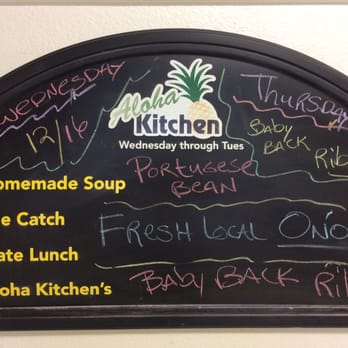 WEDNESDAY
12/16
Aloha
Kitchen
Wednesday through Tues
THURSDAY
BABY
BACK
RIB
omemade Soup
PORTUGESE
BEAN
e Catch
FRESH LOCAL ONO
ate Lunch
oha Kitchen's
BABY BACK RIB